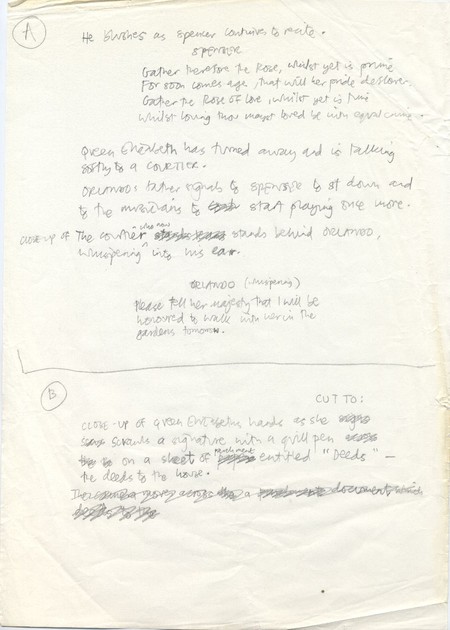 A
He blushes as Spencer continues to recite.
SPENSER
Gather therefore the Rose, whilst yet is prime
For soon comes age, that will her pride deflower,
Gather the Rose of Love, whilst yet is time
whilst loving thou mayst loved be with equal crime.
Queen Elizabeth has turned away and is talking
softly to a COURTIER.
ORLANDO's father signals to SPENSER to sit down and
to the musicians to start playing once more.
CLOSE-UP OF The courtier who now stands behind ORLANDO,
whispering into his ear.
ORLANDO (whispering)
Please tell her majesty that I will be
honoured to walk with her in the
gardens tomorrow.
B
CUT TO:
CLOSE-UP OF Queen Elizabeths hands as she
scrawls a signature with a quill pen
on a sheet of parchment entitled "Deeds" —
the deeds to the house.